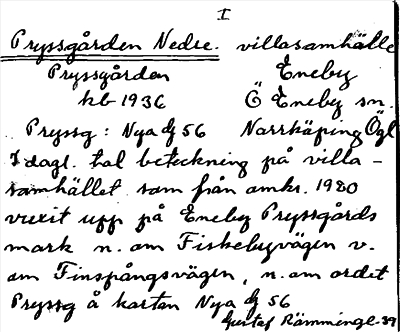 I
Pryssgården Nedre. villasamhälle
Pryssgården Eneby
kb 1936 Ö Eneby sn.
Pryssg: Nya 56 Norrköping Ögl
I dagl. tal beteckning på villa-
samhället som från omkr. 1920
vuxit upp på Eneby Pryssgårds
mark n. om Fiskebyvägen v.
om Finspångsvägen, n. om ordet
Pryssg å kartan Nya 56
Gustaf Rämminge-37